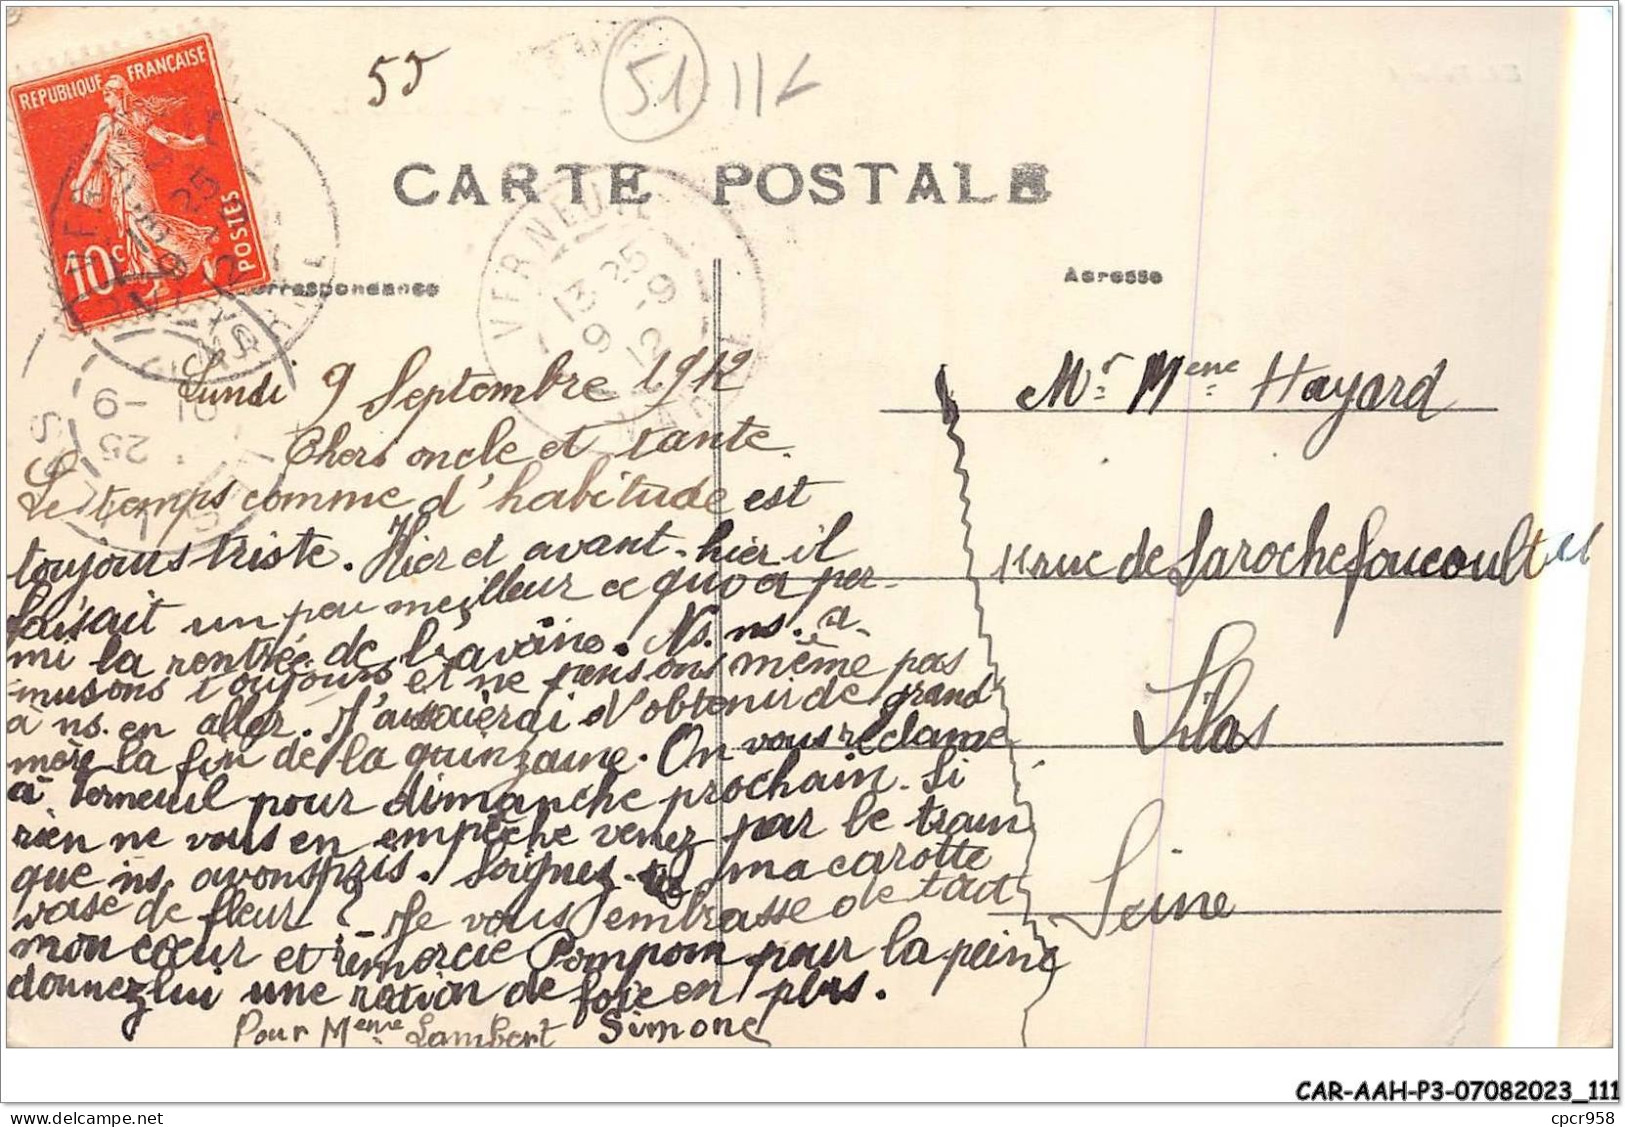 55
51
REPUBLIQUE FRANÇAISE
10c POSTES
CARTE POSTALE
VERNEUIL
13 25
9 -9
12
Correspondance
Adresse
Lundi 9 Septembre 1912
Chers oncle et tante.
Le temps comme d'habitude est
toujours triste. Hier et avant-hier il
faisait un peu meilleur ce qui a per-
mi la rentrée de l'avoine. Ns. ns. a-
musons toujours et ne pensons même pas
à ns. en aller. J'essaierai d'obtenir de grand
mère la fin de la quinzaine. On vous réclame
à Verneuil pour dimanche prochain. Si
rien ne vous en empêche venez par le train
que ns. avons pris. Soignez ma carotte
vase de fleur ? - Je vous embrasse de tout
mon cœur et remercie Pompom pour la peine
donnez lui une ration de foie en plus.
Simone
Pour Meme Lambert
Mr Meme Hayard
11 rue de Larochefoucoult
Lilas
Seine
CAR-AAH-P3-07082023_111
cpcr958